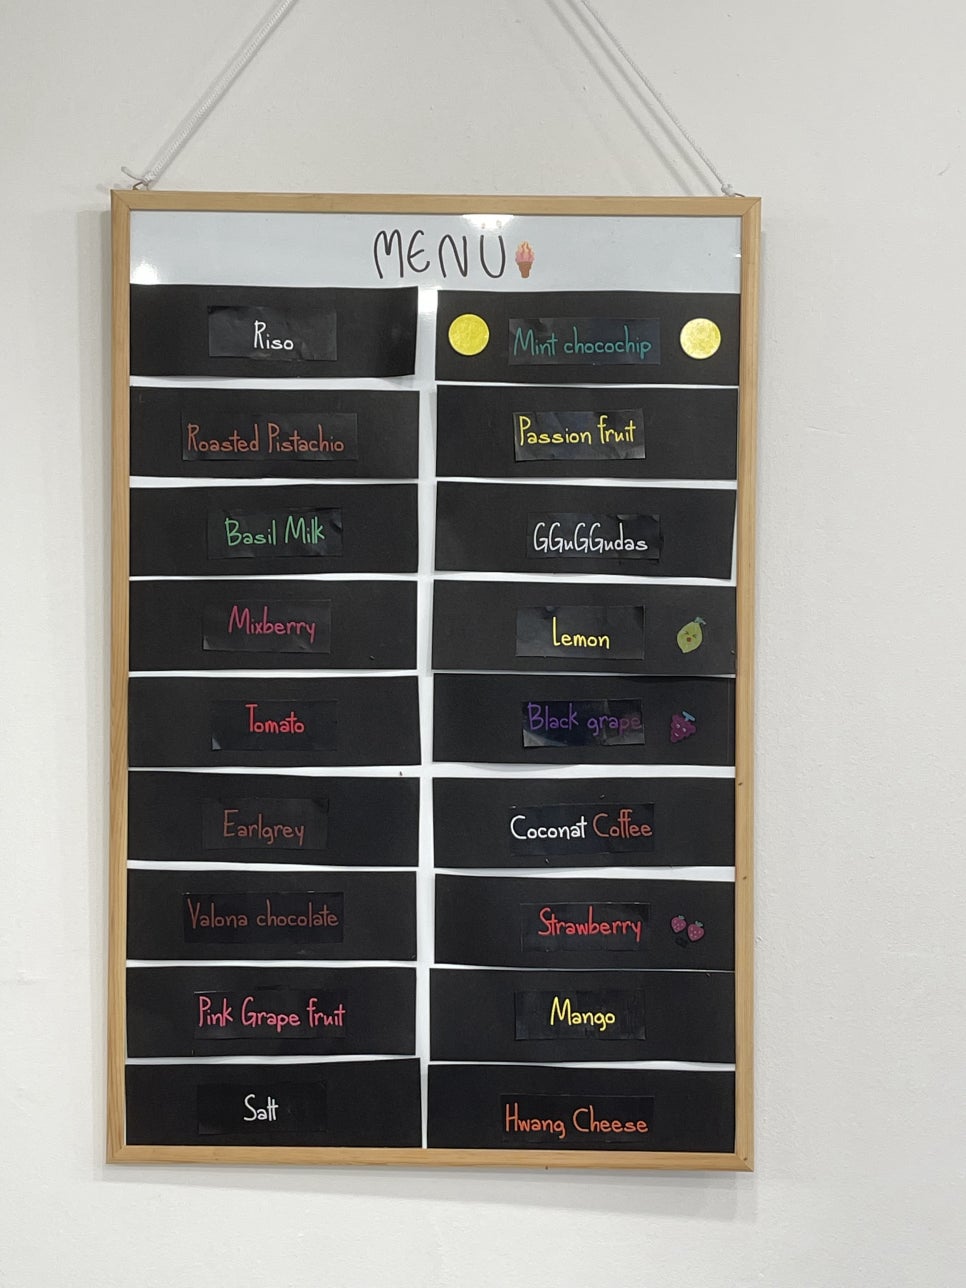 MENU
Riso
Mint chocochip
Roasted Pistachio
Passion fruit
Basil Milk
GGuGGudas
Mixberry
Lemon
Tomato
Black grape
Earlgrey
Coconat Coffee
Valona chocolate
Strawberry
Pink Grape fruit
Mango
Salt
Hwang Cheese